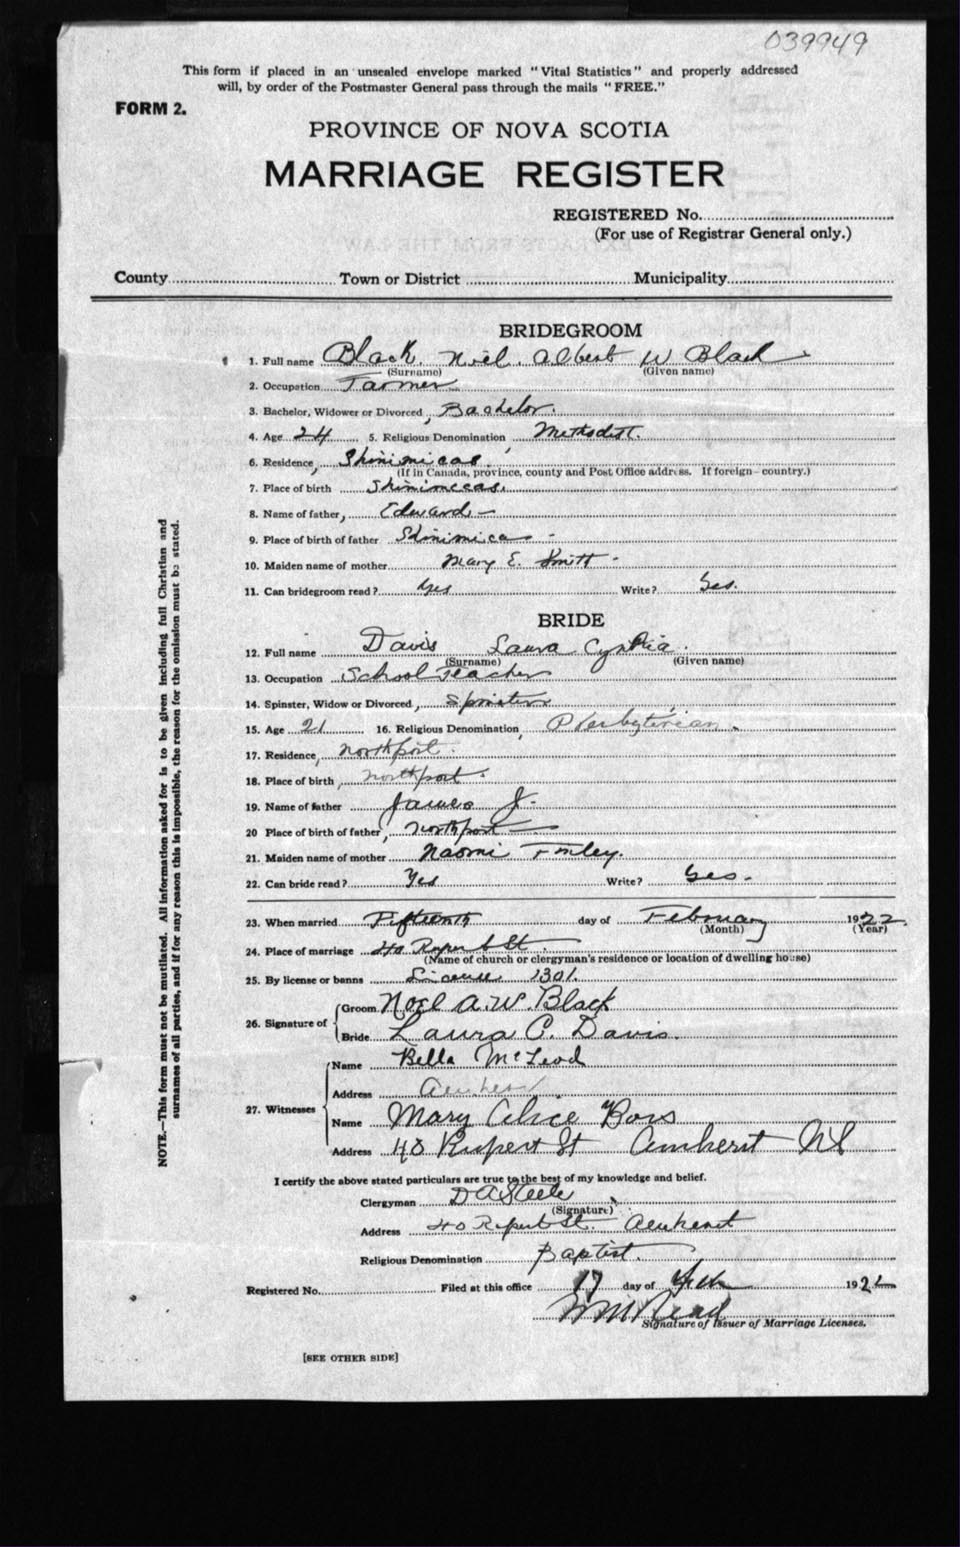 039949
This form if placed in an unsealed envelope marked "Vital Statistics" and properly addressed
will, by order of the Postmaster General pass through the mails "FREE."
FORM 2.
PROVINCE OF NOVA SCOTIA
MARRIAGE REGISTER
REGISTERED No.
(For use of Registrar General only.)
County Town or District Municipality
BRIDEGROOM
1. Full name Black Niel Albert W Black
(Surname) (Given name)
2. Occupation Farmer
3. Bachelor, Widower or Divorced, Bachelor.
4. Age 24 5. Religious Denomination, Methodist.
6. Residence, Shinimicas
(If in Canada, province, county and Post Office address. If foreign—country.)
7. Place of birth Shinimecas.
8. Name of father, Edward
9. Place of birth of father Shinimicas
10. Maiden name of mother Mary E. Smith
11. Can bridegroom read? Yes Write? Yes.
BRIDE
12. Full name Davis Laura Cynthia.
(Surname) (Given name)
13. Occupation School Teacher
14. Spinster, Widow or Divorced, Spinster
15. Age 21 16. Religious Denomination, Presbyterian.
17. Residence, Northport.
18. Place of birth, Northport.
19. Name of father James J.
20 Place of birth of father, Northport
21. Maiden name of mother Naomi
22. Can bride read? Yes Write? Yes.
23. When married Fifteenth day of February 1922.
(Month) (Year)
24. Place of marriage 40 Rupert St.
(Name of church or clergyman's residence or location of dwelling house)
25. By license or banns License 1301
26. Signature of Groom Noel A. W. Black
Bride Laura C. Davis.
27. Witnesses Name Bella McLeod
Address Amherst
Name Mary Alice
Address 40 Rupert St Amherst NS
I certify the above stated particulars are true to the best of my knowledge and belief.
Clergyman D A Steele
(Signature)
Address 40 Rupert St. Amherst
Religious Denomination Baptist.
Registered No. Filed at this office 17 day of Feb 1922
Signature of Issuer of Marriage Licenses.
[SEE OTHER SIDE]
NOTE.—This form must not be mutilated. All information asked for is to be given including full Christian and
surnames of all parties, and if for any reason this is impossible, the reason for the omission must be stated.